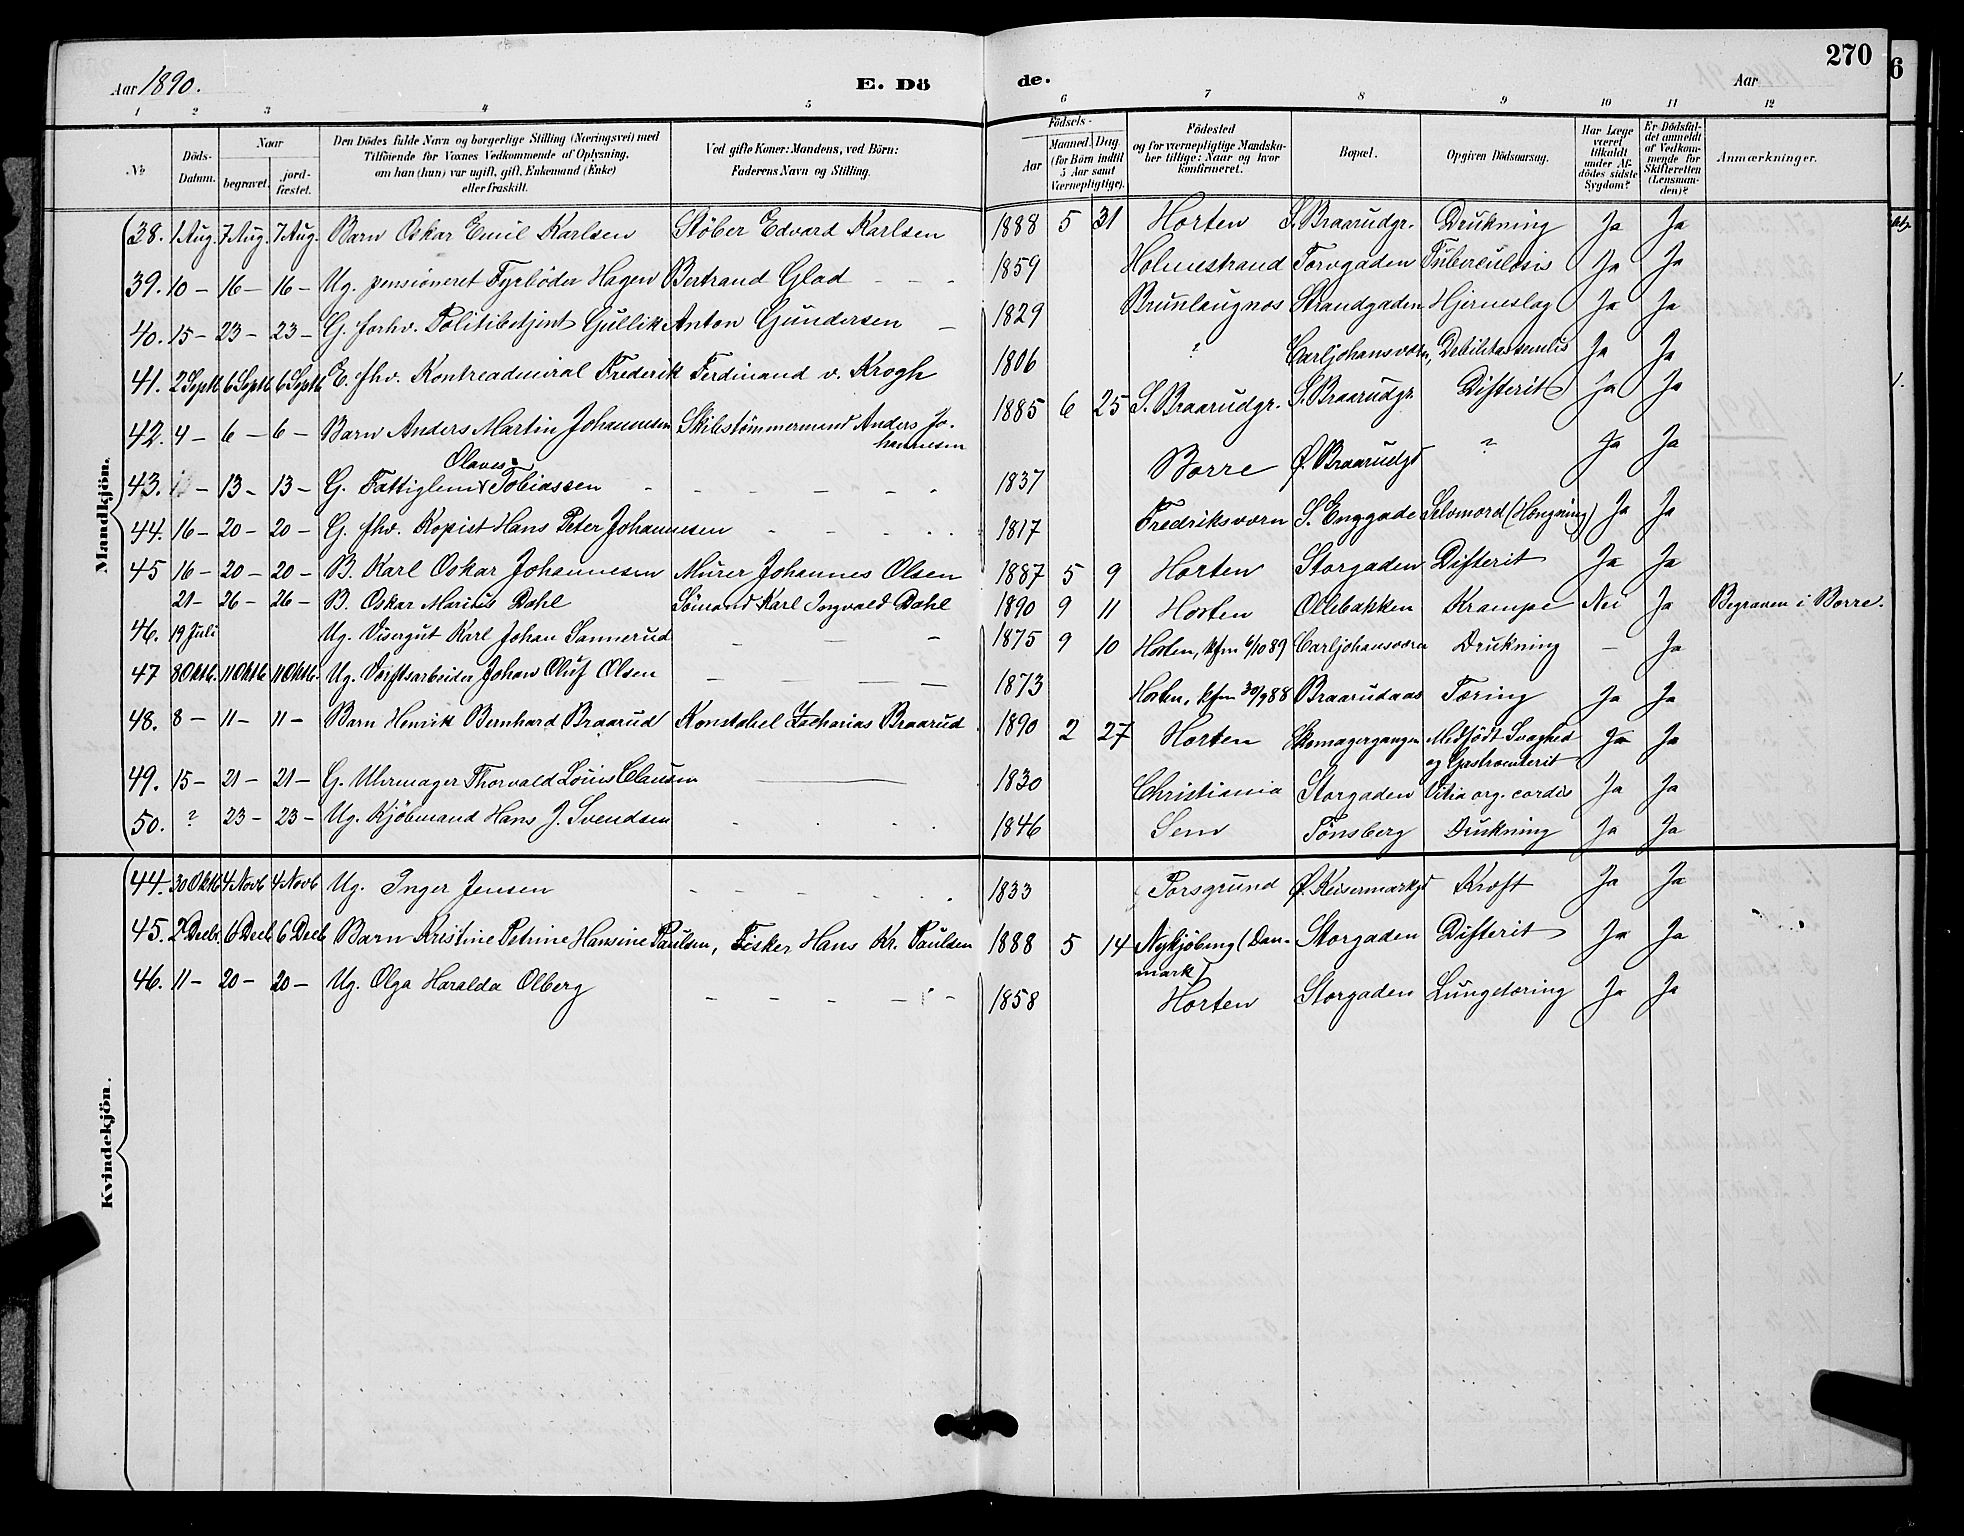 270
6
Aar 1890.
E. Dö
de.
Aar
1 2 3 4 5 6 7 8 9 10 11 12
No
Döds-Datum.
Naar
begravet.
jord-fæstet.
Den Dödes fulde Navn og borgerlige Stilling (Næringsvei) med
Tilföiende for Voxnes Vedkommende af Oplysning,
om han (hun) var ugift, gift, Enkemand (Enke)
eller fraskilt.
Ved gifte Koner: Mandens, ved Börn:
Faderens Navn og Stilling.
Födsels-
Aar
Maaned. Dag
(for Börn indtil
5 Aar samt
Værnepligtige).
Födested
og for værnepligtige Mandska-
ber tillige: Naar og hvor
konfirmeret.
Bopæl.
Opgiven Dödsaarsag.
Har Læge
været
tilkaldt
under Af-
dödes sidste
Sygdom?
Er Dödsfal-
det anmeldt
af Vedkom-
mende for
Skifteretten
(Lensman-
den)?
Anmærkninger.
Mandkjön.
38. 1 Aug. 7 Aug. 7 Aug. Barn Oskar Emil Karlsen Støber Edvard Karlsen 1888 5 31 Horten S. Braarudgr. Drukning Ja Ja
39. 10 – 16 – 16 – Ug. pensioneret Fyrbøder Hagen Bertrand Glad - - - 1859 Holmestrand Torvgaden Tuberculosis Ja Ja
40. 15 – 23 – 23 – G. forhv. Politibetjent Gullik Anton Gundersen – 1829 Brunlaugnæs Strandgaden Hjerneslag Ja Ja
41. 2 Septb 6 Septb 6 Septb E. fhv. Kontreadmiral Frederik Ferdinand v. Krogh 1806 ? Carljohansværn, Debilitas senilis Ja Ja
42. 4 – 6 – 6 – Barn Anders Martin Johannesen Skibstømmermand Anders Jo-
hannesen 1885 6 25 S. Braarudgr. S. Braarudgr. Difterit Ja Ja
Olaves
43. – 13 – 13 – G. Fattiglem Tobiassen - - - - - 1837 Borre Ø. Braarudgd ? Ja Ja
44. 16 – 20 – 20 – G. fhv. Kopist Hans Peter Johannesen - - - - 1817 Fredriksværn S. Enggade Selvmord (Hængning) Ja Ja
45 16 – 20 – 20 – B. Karl Oskar Johannesen Murer Johannes Olsen 1887 5 9 Horten Storgaden Difterit Ja Ja
21 – 26 – 26 – B. Oskar Marius Dahl Sømand Karl Ingvald Dahl 1890 9 11 Horten Ollebakken Krampe Nei Ja Begraven i Borre.
46. 19 Juli Ug. Visergut Karl Johan Sannerud – – – 1875 9 10 Horten, kfm 6/10 89 Carljohansværn Drukning – Ja
47 8 Oktb. 11 Oktb 11 Oktb. Ug. Værftsarbeider Johan Oluf Olsen – – – – 1873 Horten, kfm 30/9 88 Braarudaas Tæring Ja Ja
48. 8 – 11 – 11 – Barn Henrik Bernhard Braarud Konstabel Zacharias Braarud 1890 2 27 Horten Skomagergangen Medfødt Svaghed
og Gastroenterit Ja Ja
49. 15 – 21 – 21 – G. Uhrmager Thorvald Louis Clausen — 1830 Christiania Storgaden Vitia org. cordis Ja Ja
50. ? 23 – 23 – Ug. Kjøbmand Hans J. Svendsen - - - - 1846 Sem Tønsberg Drukning Ja Ja
Kvindekjön.
44. 30 Oktb 4 Novb 4 Novb Ug. Inger Jensen - - - - - 1833 Porsgrund Ø. Keisermarkgd Kræft Ja Ja
45. 2 Decb. 6 Decb 6 Decb Barn Kristine Petrine Hansine Paulsen, Fisker Hans Kr. Paulsen 1888 5 14 Nykjøbing (Dan-
mark) Storgaden Difterit Ja Ja
46. 11 – 20 – 20 – Ug. Olga Haralda Olberg – – – – – 1858 Horten Storgaden Lungetæring Ja Ja